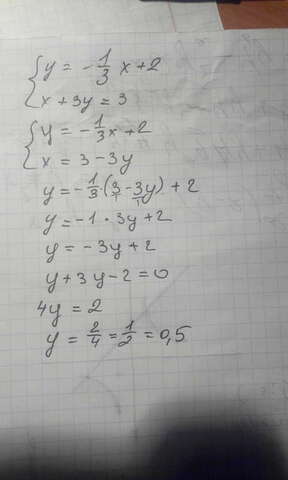 { y = -1/3 x + 2
x + 3y = 3
{ y = -1/3 x + 2
x = 3 - 3y
y = -1/3 · (3 - 3y) + 2
y = -1 · 3y + 2
y = -3y + 2
y + 3y - 2 = 0
4y = 2
y = 2/4 = 1/2 = 0,5